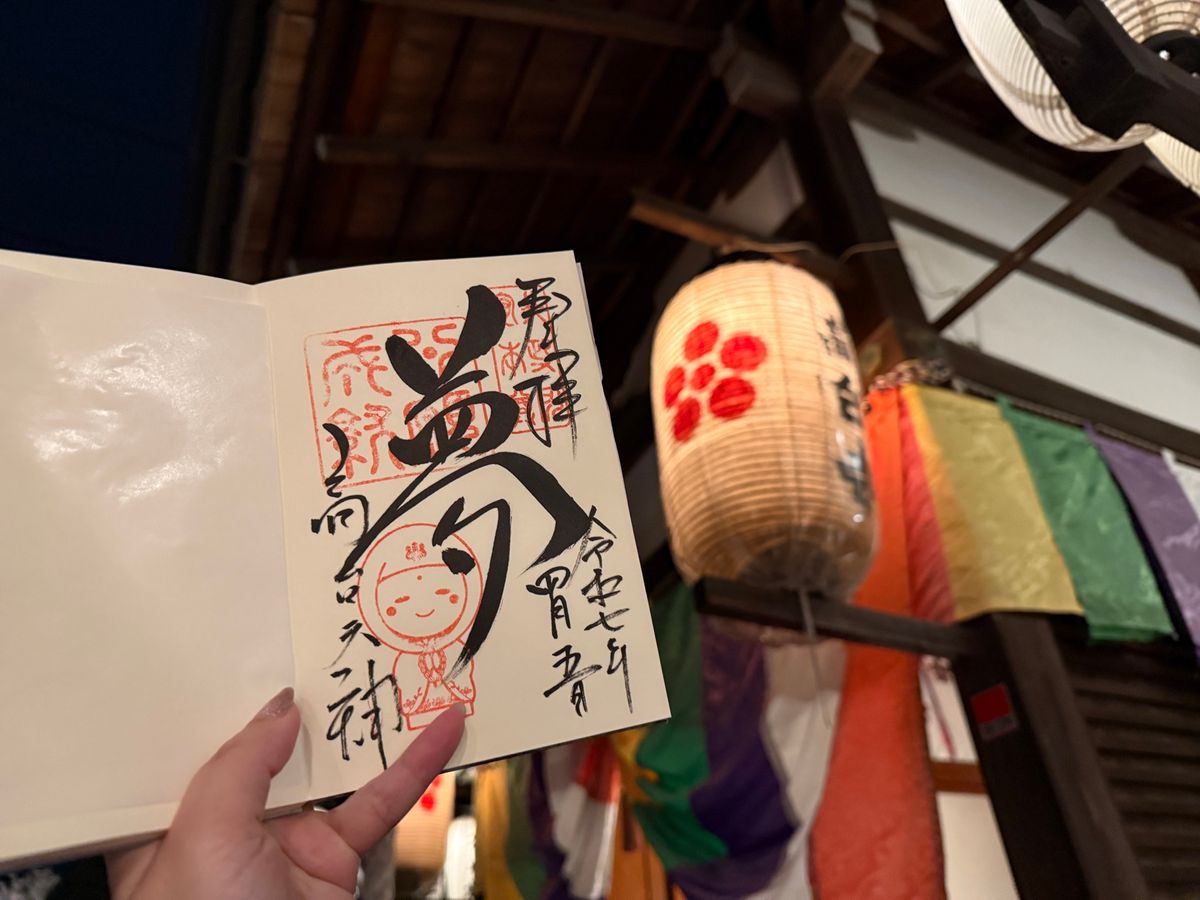 奉拝
令和七年
四月五日
夢
高台天神
高台寺